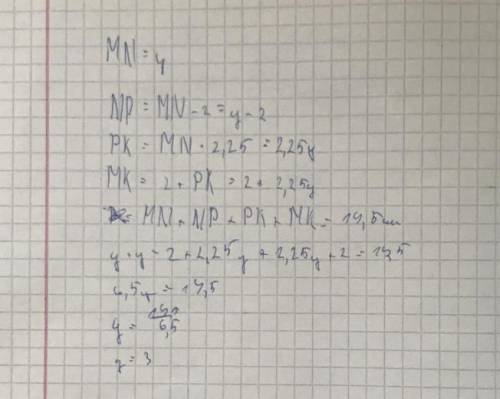 MN = y
NP = MN - 2 = y - 2
PK = MN · 2,25 = 2,25y
MK = 2 + PK = 2 + 2,25y
= MN + NP + PK + MK = 19,5 см
y + y - 2 + 2,25y + 2,25y + 2 = 19,5
6,5y = 19,5
y = 19,5/6,5
y = 3